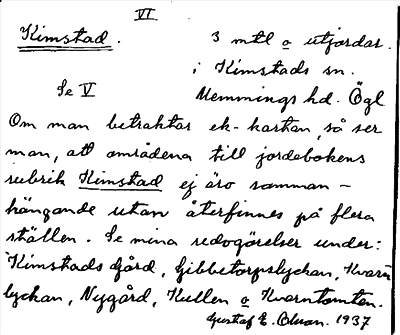 VI
Kimstad. 3 mtl o utjordar.
i Kimstads sn.
Se V Memmings hd. Ögl
Om man betraktar ek-kartan, så ser
man, att områdena till jordebokens
rubrik Kimstad ej äro samman-
hängande utan återfinnes på flera
ställen. Se mina redogörelser under:
Kimstads Gård, Gibbetorpslyckan, Kvarn
lyckan, Nygård, Kullen o Kvarntomten.
Gustaf E. Olsson. 1937